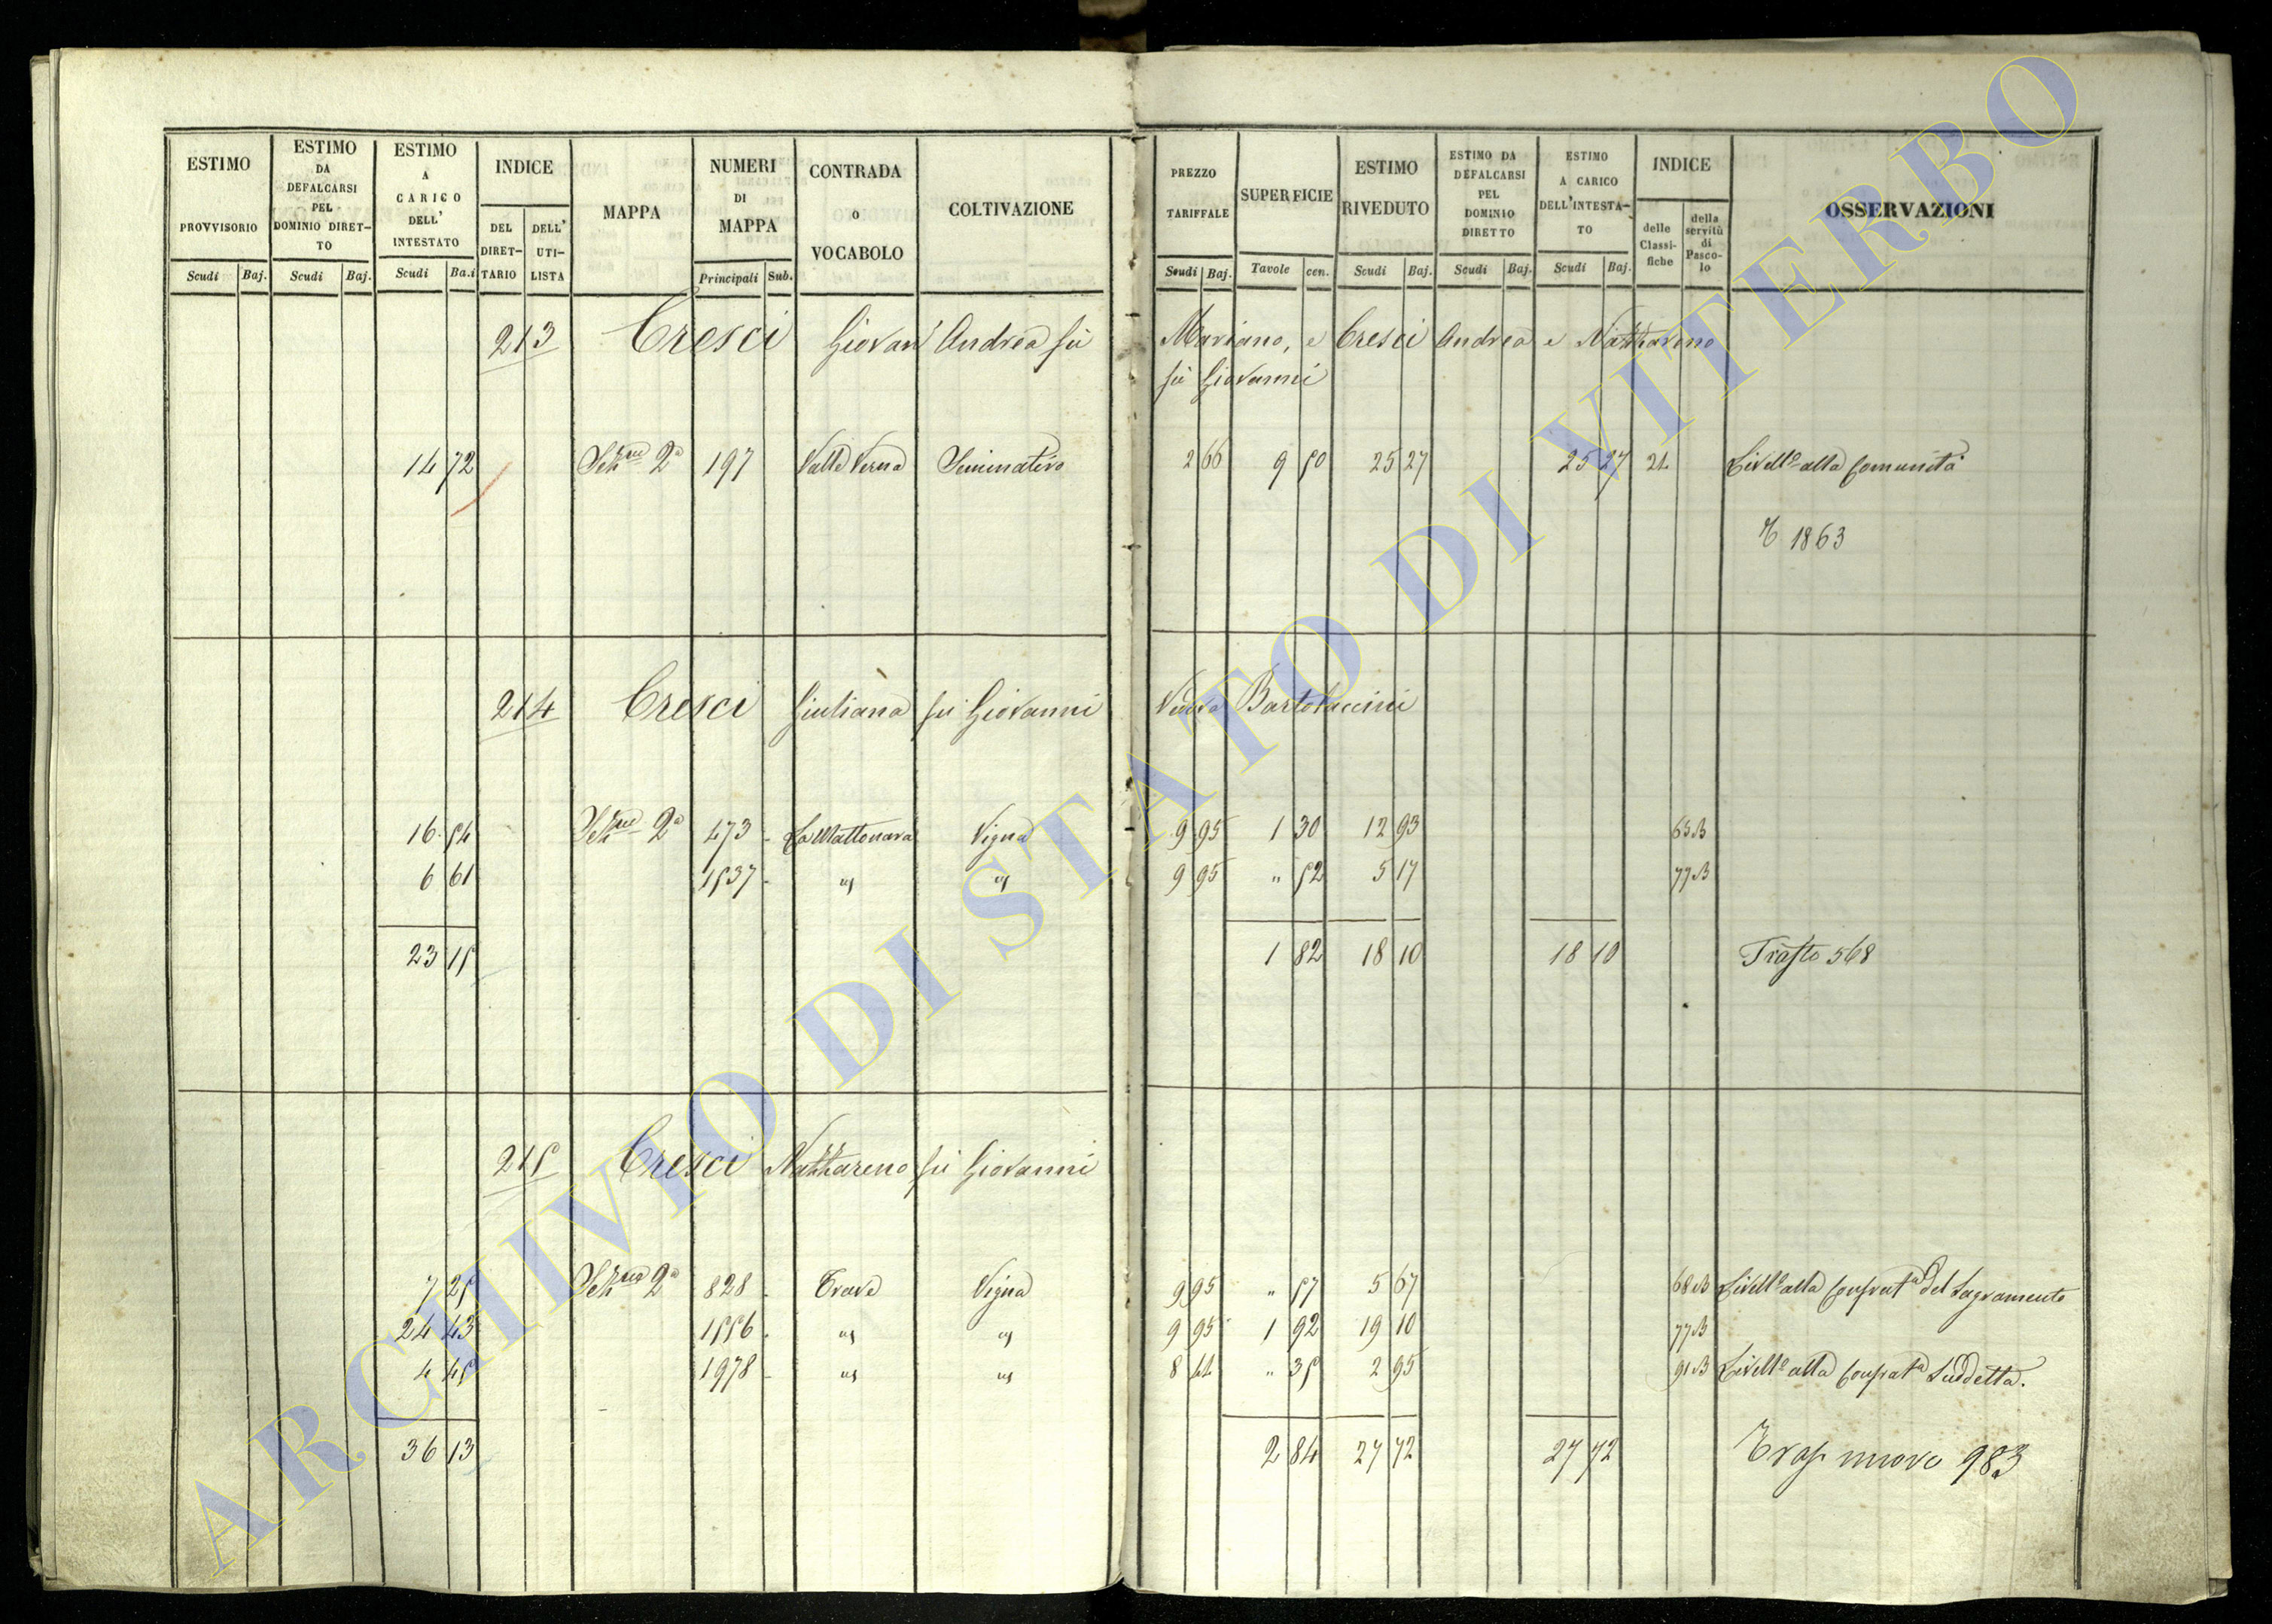 ESTIMO PROVVISORIO | ESTIMO DA DEFALCARSI PEL DOMINIO DIRET-TO | ESTIMO A CARICO DELL' INTESTATO | INDICE | MAPPA | NUMERI DI MAPPA | CONTRADA O VOCABOLO | COLTIVAZIONE | PREZZO TARIFFALE | SUPERFICIE | ESTIMO RIVEDUTO | ESTIMO DA DEFALCARSI PEL DOMINIO DIRETTO | ESTIMO A CARICO DELL'INTESTA-TO | INDICE | OSSERVAZIONI
DEL DIRET-TARIO | DELL' UTI-LISTA | delle Classi-fiche | della servitù di Pasco-lo
Scudi | Baj. | Scudi | Baj. | Scudi | Ba.i | Principali | Sub. | Scudi | Baj. | Tavole | cen. | Scudi | Baj. | Scudi | Baj. | Scudi | Baj.
213 Cresci Giovan Andrea fù Mariano, e Cresci Andrea e Nazzareno
fù Giovanni
14 72 Sezne 2a 197 Valle Verna Seminativo 2 66 9 50 25 27 25 27 21 Livello alla Comunità
1863
214 Cresci Giuliana fù Giovanni Vedova Bartolaccini
16 54 Sezne 2a 473 La Mattonara Vigna 9 95 1 30 12 93 65B
6 61 1537 " " 9 95 " 52 5 17 77B
23 15 1 82 18 10 18 10 Trasto 568
215 Cresci Nazzareno fù Giovanni
7 25 Sezne 2a 828 Trave Vigna 9 95 " 57 5 67 68B Livello alla Confrata del Sagramento
24 43 1556 " " 9 95 1 92 19 10 77B
4 45 1978 " " 8 44 " 35 2 95 91B Livello alla Confrata Suddetta.
36 13 2 84 27 72 27 72 Trasp nuovo 983
ARCHIVIO DI STATO DI VITERBO